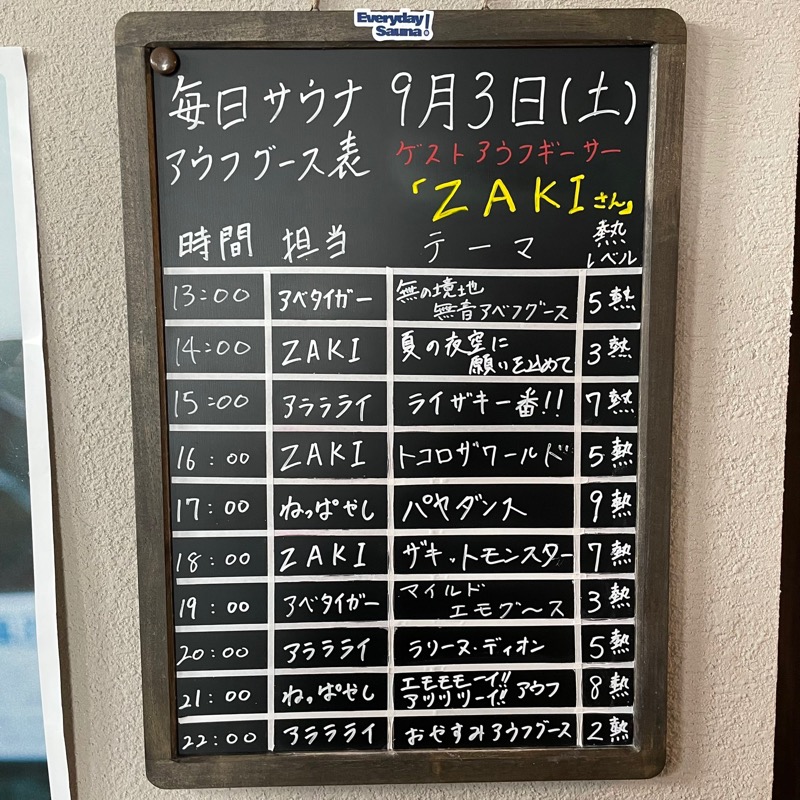 Everyday
Sauna!
毎日サウナ 9月3日(土)
アウフグース表 ゲストアウフギーサー
「ZAKIさん」
時間 担当 テーマ 熱レベル
13:00 アベタイガー 無の境地 無音アベフグース 5熱
14:00 ZAKI 夏の夜空に 願いを込めて 3熱
15:00 アラララライ ライザキ一番!! 7熱
16:00 ZAKI トコロザワールド 5熱
17:00 ねっぱやし パヤダンス 9熱
18:00 ZAKI ザキットモンスター 7熱
19:00 アベタイガー マイルド エモグ〜ス 3熱
20:00 アララライ ラリーヌ・ディオン 5熱
21:00 ねっぱやし エモモモーイ!! アツリリリーイ!! アウフ 8熱
22:00 アララライ おやすみアウフグース 2熱